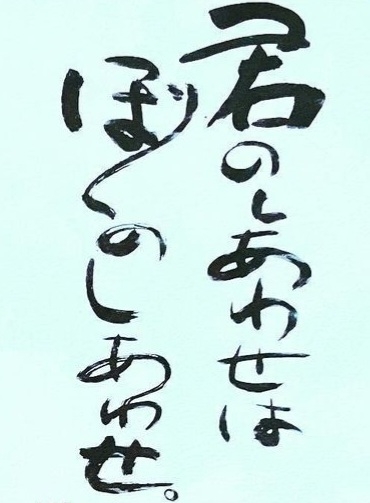 君のしあわせは
ぼくのしあわせ。